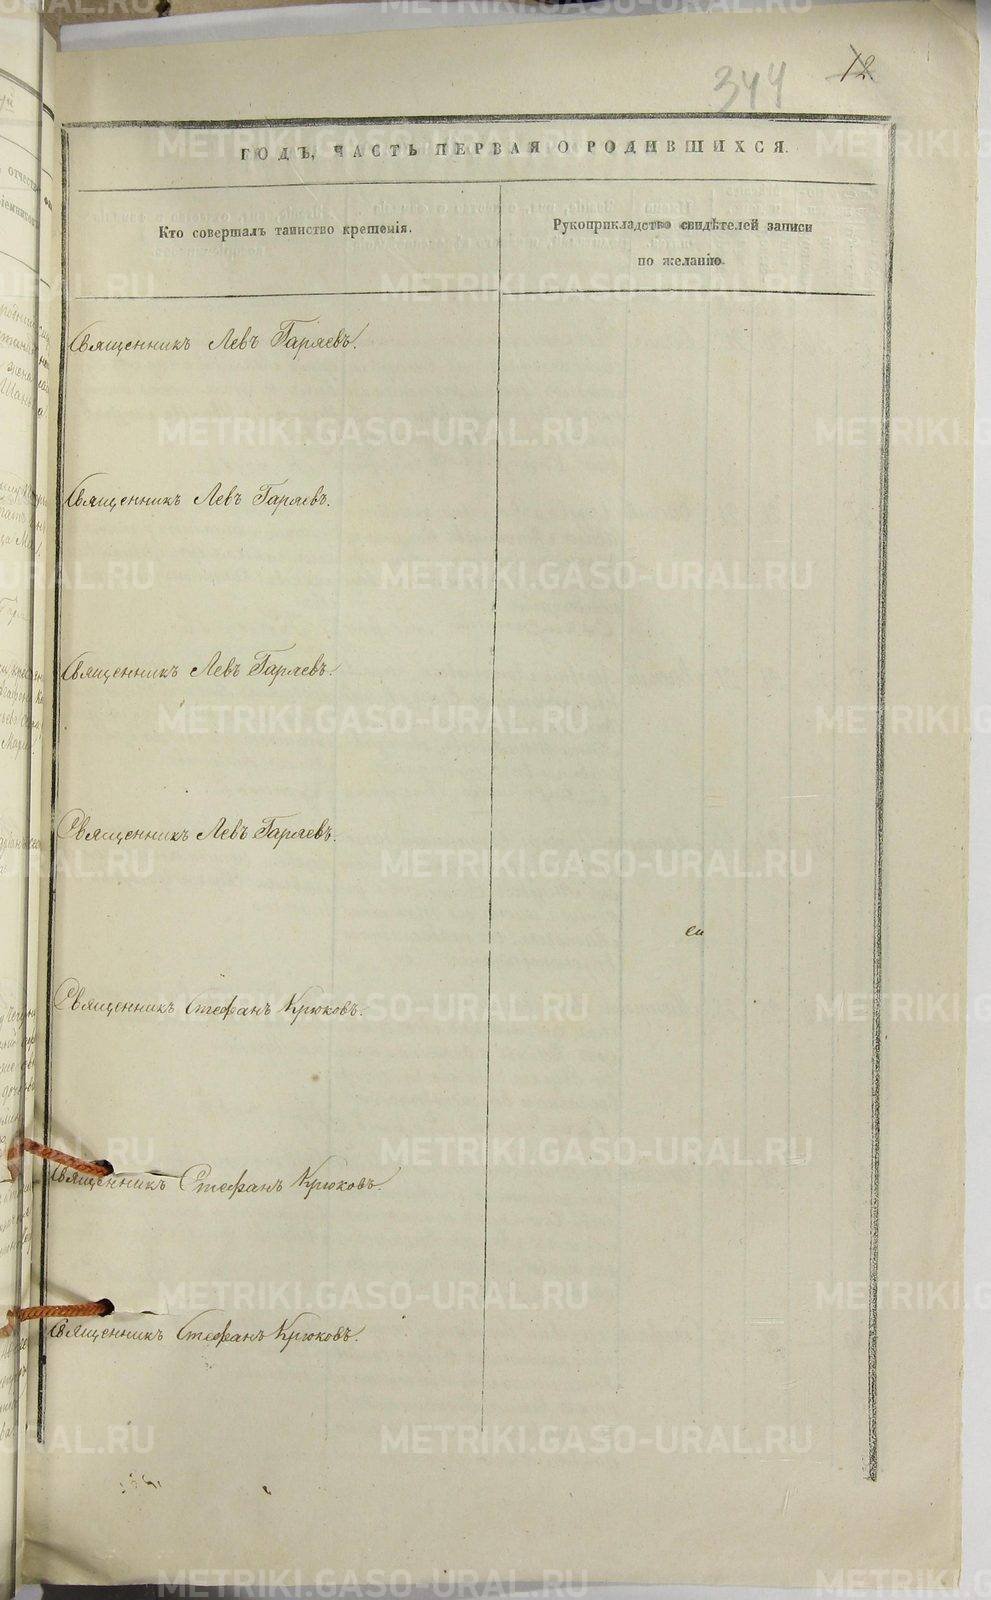 344
12
ГОДЪ, ЧАСТЬ ПЕРВАЯ О РОДИВШИХСЯ.
Кто совершалъ таинство крещенія.
Рукоприкладство свидѣтелей записи
по желанію.
Священникъ Левъ Гаряевъ.
Священникъ Левъ Гаряевъ.
Священникъ Левъ Гаряевъ.
Священникъ Левъ Гаряевъ.
Священникъ Стефанъ Крюковъ.
Священникъ Стефанъ Крюковъ.
Священникъ Стефанъ Крюковъ.
METRIKI.GASO-URAL.RU